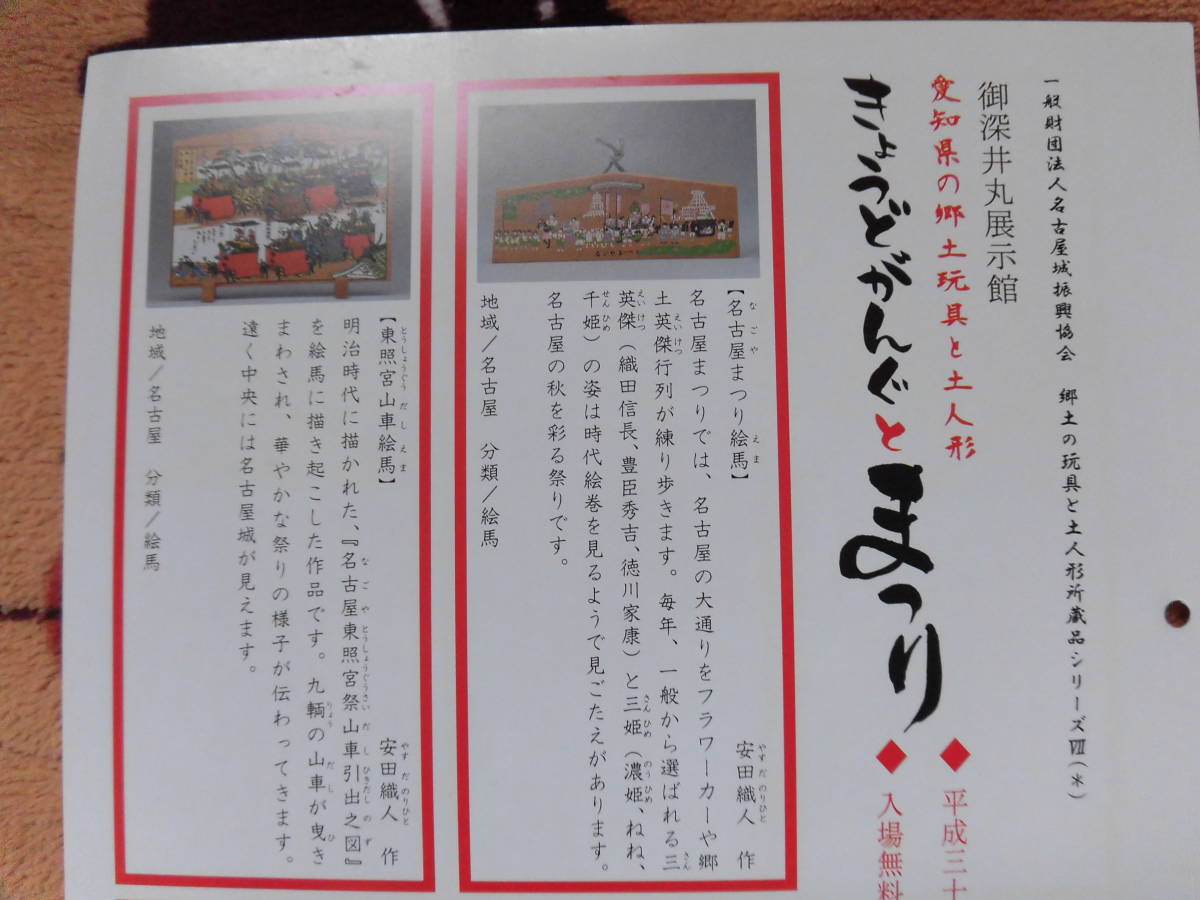 一般財団法人名古屋城振興協会　郷土の玩具と土人形所蔵品シリーズⅦ(木)
御深井丸展示館
愛知県の郷土玩具と土人形
きょうどがんぐとまつり
◆平成三十
◆入場無料
【名古屋まつり絵馬】　安田織人　作
名古屋まつりでは、名古屋の大通りをフラワーカーや郷
土英傑行列が練り歩きます。毎年、一般から選ばれる三
英傑（織田信長、豊臣秀吉、徳川家康）と三姫（濃姫、ねね、
千姫）の姿は時代絵巻を見るようで見ごたえがあります。
名古屋の秋を彩る祭りです。
地域／名古屋　分類／絵馬
【東照宮山車絵馬】　安田織人　作
明治時代に描かれた、『名古屋東照宮祭山車引出之図』
を絵馬に描き起こした作品です。九輌の山車が曳き
まわされ、華やかな祭りの様子が伝わってきます。
遠く中央には名古屋城が見えます。
地域／名古屋　分類／絵馬